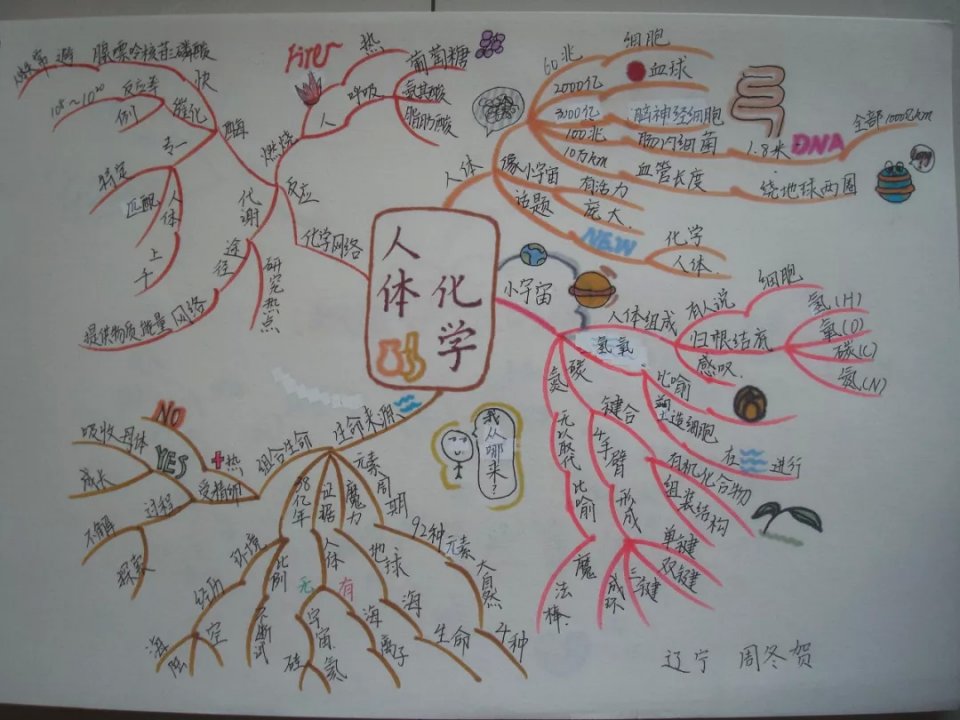 人体
化学
人体
像小宇宙
60兆
细胞
2000亿
血球
3300亿
脑神经细胞
100兆
肠内细菌
1.8米
DNA
全部1000亿km
10万km
血管长度
绕地球两圈
话题
有活力
庞大
NEW
化学
人体
小宇宙
人体组成
有人说
细胞
归根结底
氢(H)
氧(O)
碳(C)
氮(N)
感叹
氢氧
比喻
塑造细胞
在
进行
氮
碳
无以取代
比喻
魔
法
棒
键合
4手臂
形成
单键
双键
三键
成环
有机化合物
组装结构
生命来源
我从哪来?
组合生命
受精卵
+热
NO
YES
吸收母体
过程
成长
不解
探索
38亿年
环境
经历
海
陆
空
此刻
不断试
证据
人体
无
有
宇宙
硅
氦
海
离子
魔力
地球
海
生命
元素周期
92种元素
大自然
4种
化学网络
反应
燃烧
Fire
热
人
呼吸
葡萄糖
氨基酸
脂肪酸
代谢
途径
网络
提供物质能量
研究热点
酶
催化
快
腺嘌呤核苷三磷酸
反应率
例
10⁸~10²⁰
专一
特定
匹配
人体
上千
辽宁 周冬贺